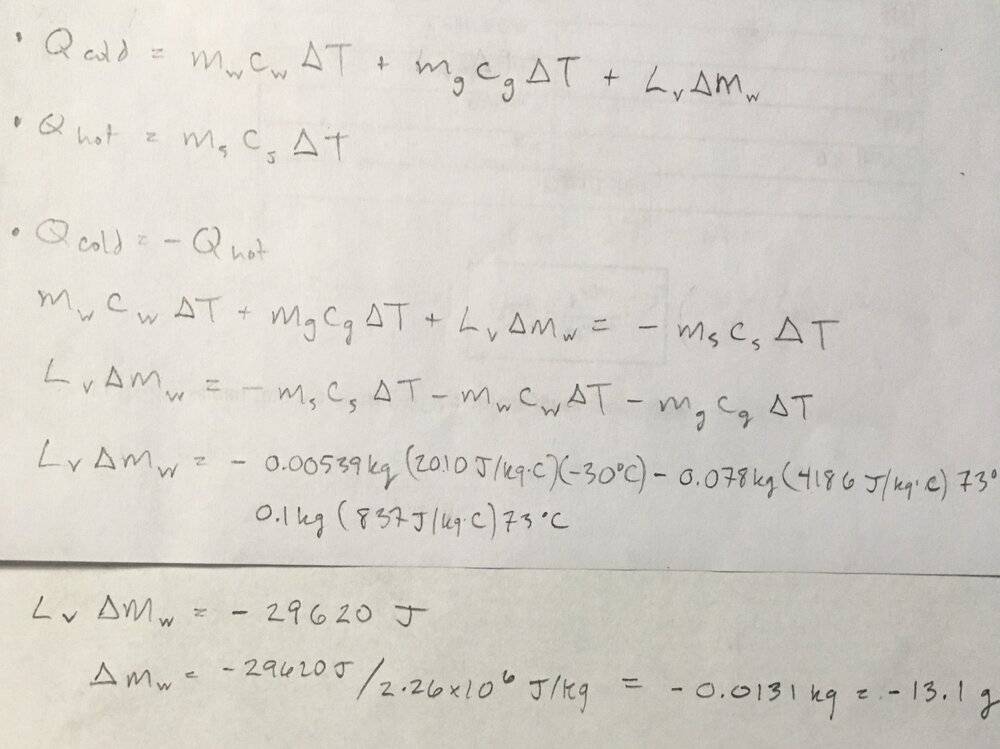 • Q cold = m_w c_w ΔT + m_g c_g ΔT + L_v Δm_w
• Q hot = m_s c_s ΔT
• Q cold = - Q hot
m_w c_w ΔT + m_g c_g ΔT + L_v Δm_w = - m_s c_s ΔT
L_v Δm_w = - m_s c_s ΔT - m_w c_w ΔT - m_g c_g ΔT
L_v Δm_w = - 0.00539 kg (2010 J/kg·C)(-30°C) - 0.078 kg (4186 J/kg·C) 73°
0.1 kg (837 J/kg·C) 73°C
L_v Δm_w = - 29620 J
Δm_w = -29620 J / 2.26×10⁶ J/kg = - 0.0131 kg = -13.1 g